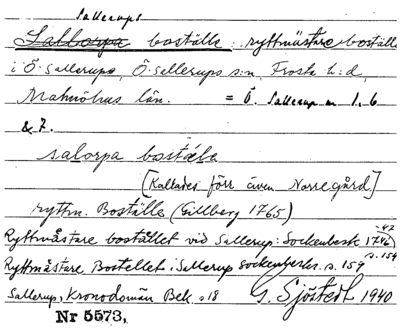 Sallerups
Sallorpa boställe: ryttmästareboställe
i Ö. Sallerups, Ö. Sallerups s:n, Frosta h:d,
Malmöhus län. = Ö. Sallerup nr 1, 6
& 7.
salorpa boställe
[Kallades förr även Norregård]
ryttm. Boställe (Gillberg 1765)
Ryttmästare bostället vid Sallerup: Sockenbeskr. 1746)
s. 159
Ryttmästare Bostellet i Sallerup Sockenbeskr. s. 159
Sallerup, Kronodomän Bek. s 18 G. Sjöstedt 1940
Nr 5573,